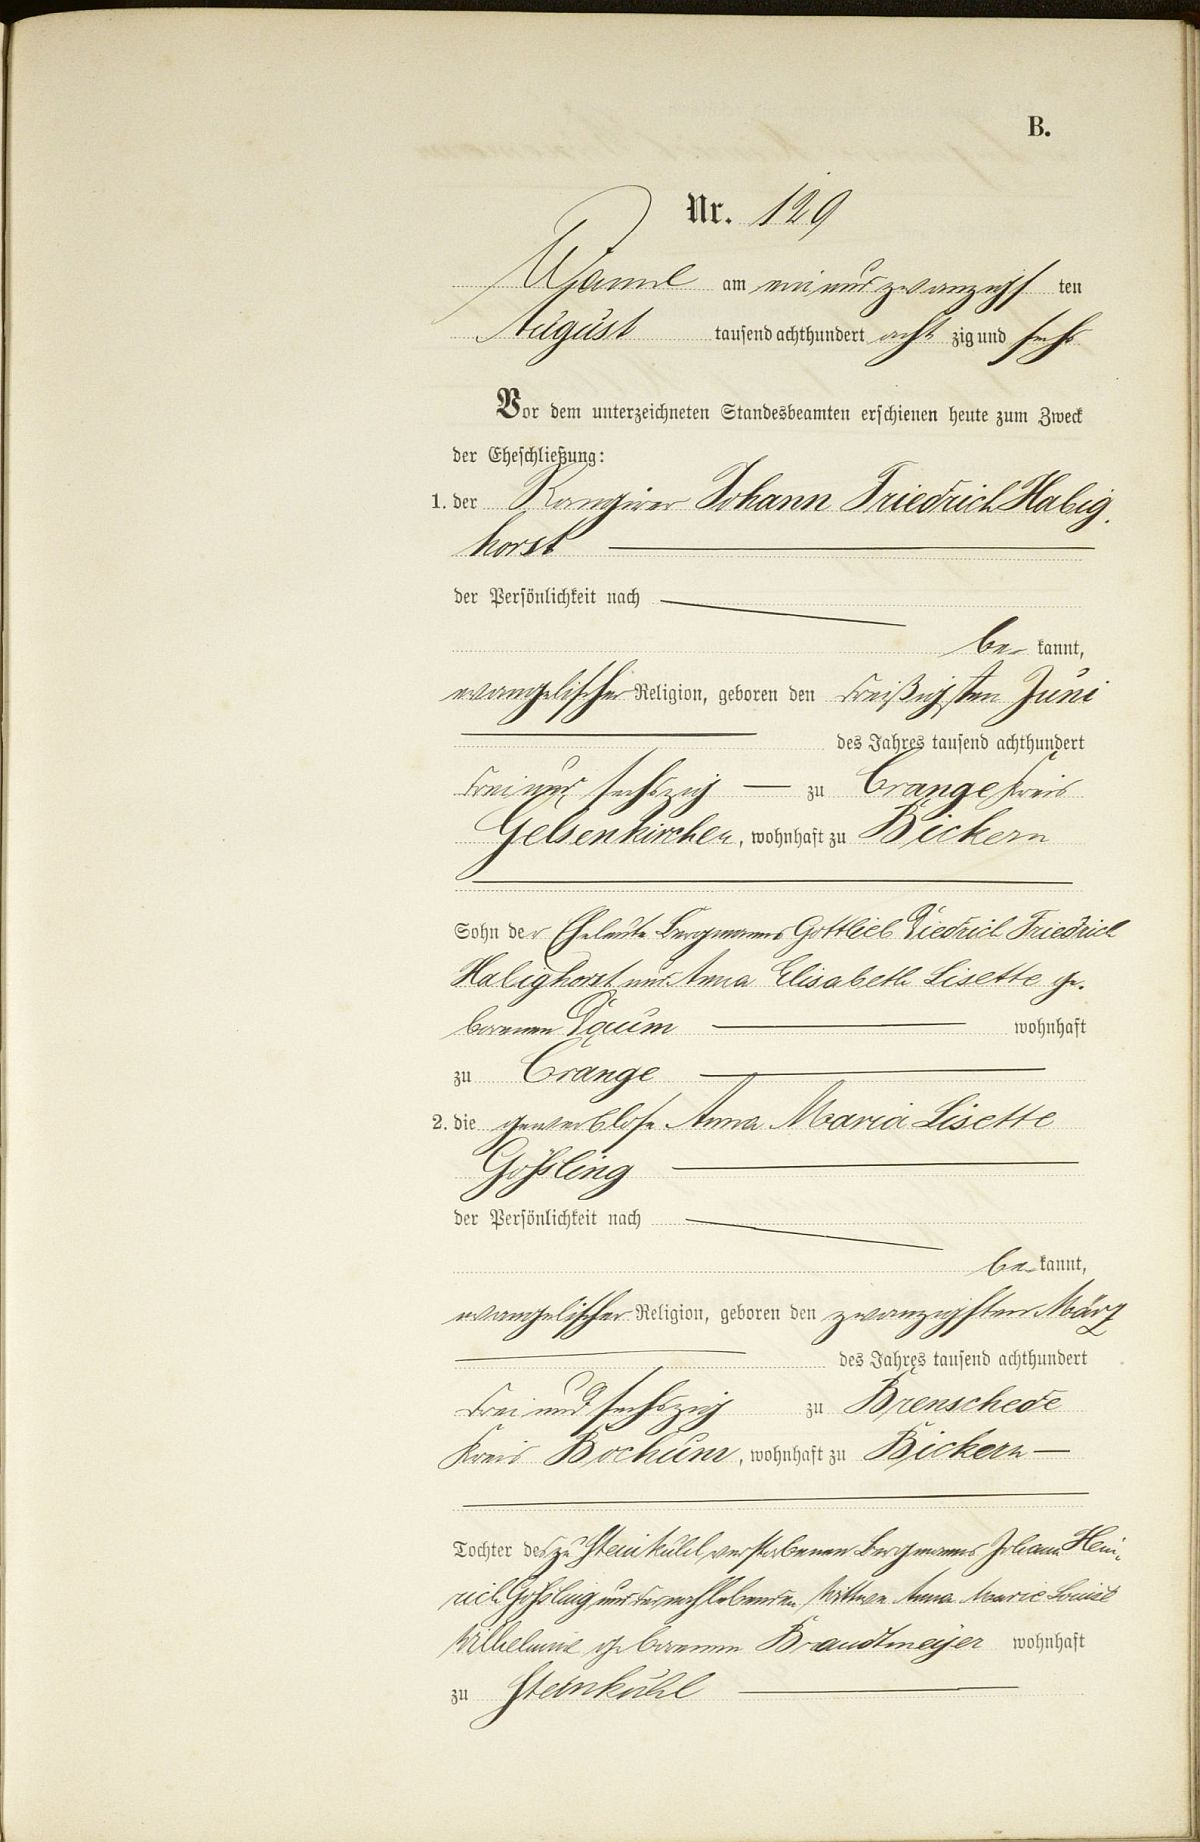 B.
Nr. 129
Wanne am ein und zwanzigsten
August tausend achthundert acht zig und sechs
Vor dem unterzeichneten Standesbeamten erschienen heute zum Zweck
der Eheschließung:
1. der Rangirer Johann Friedrich Habig-
horst
der Persönlichkeit nach
be- kannt,
evangelischer Religion, geboren den dreißigsten Juni
des Jahres tausend achthundert
drei und sechszig zu Crange Kreis
Gelsenkirchen, wohnhaft zu Bickern
Sohn der Eheleute Bergmanns Gottlieb Diedrich Friedrich
Habighorst und Anna Elisabeth Lisette ge-
borenen Daum wohnhaft
zu Crange
2. die gewerblose Anna Maria Lisette
Gößling
der Persönlichkeit nach
be- kannt,
evangelischer Religion, geboren den zwanzigsten März
des Jahres tausend achthundert
drei und sechszig zu Brenschede
Kreis Bochum, wohnhaft zu Bickern
Tochter des zu Steinkuhl verstorbenen Bergmanns Johann Hein-
rich Gößling und der nachlebenden Wittwe Anna Marie Louise
Wilhelmine geborenen Brandtmeyer wohnhaft
zu Steinkuhl